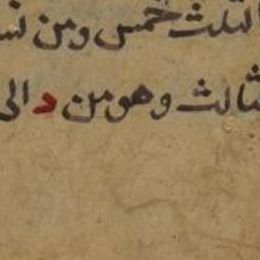 الثلث خمس ومن
الثالث وهو من د الى